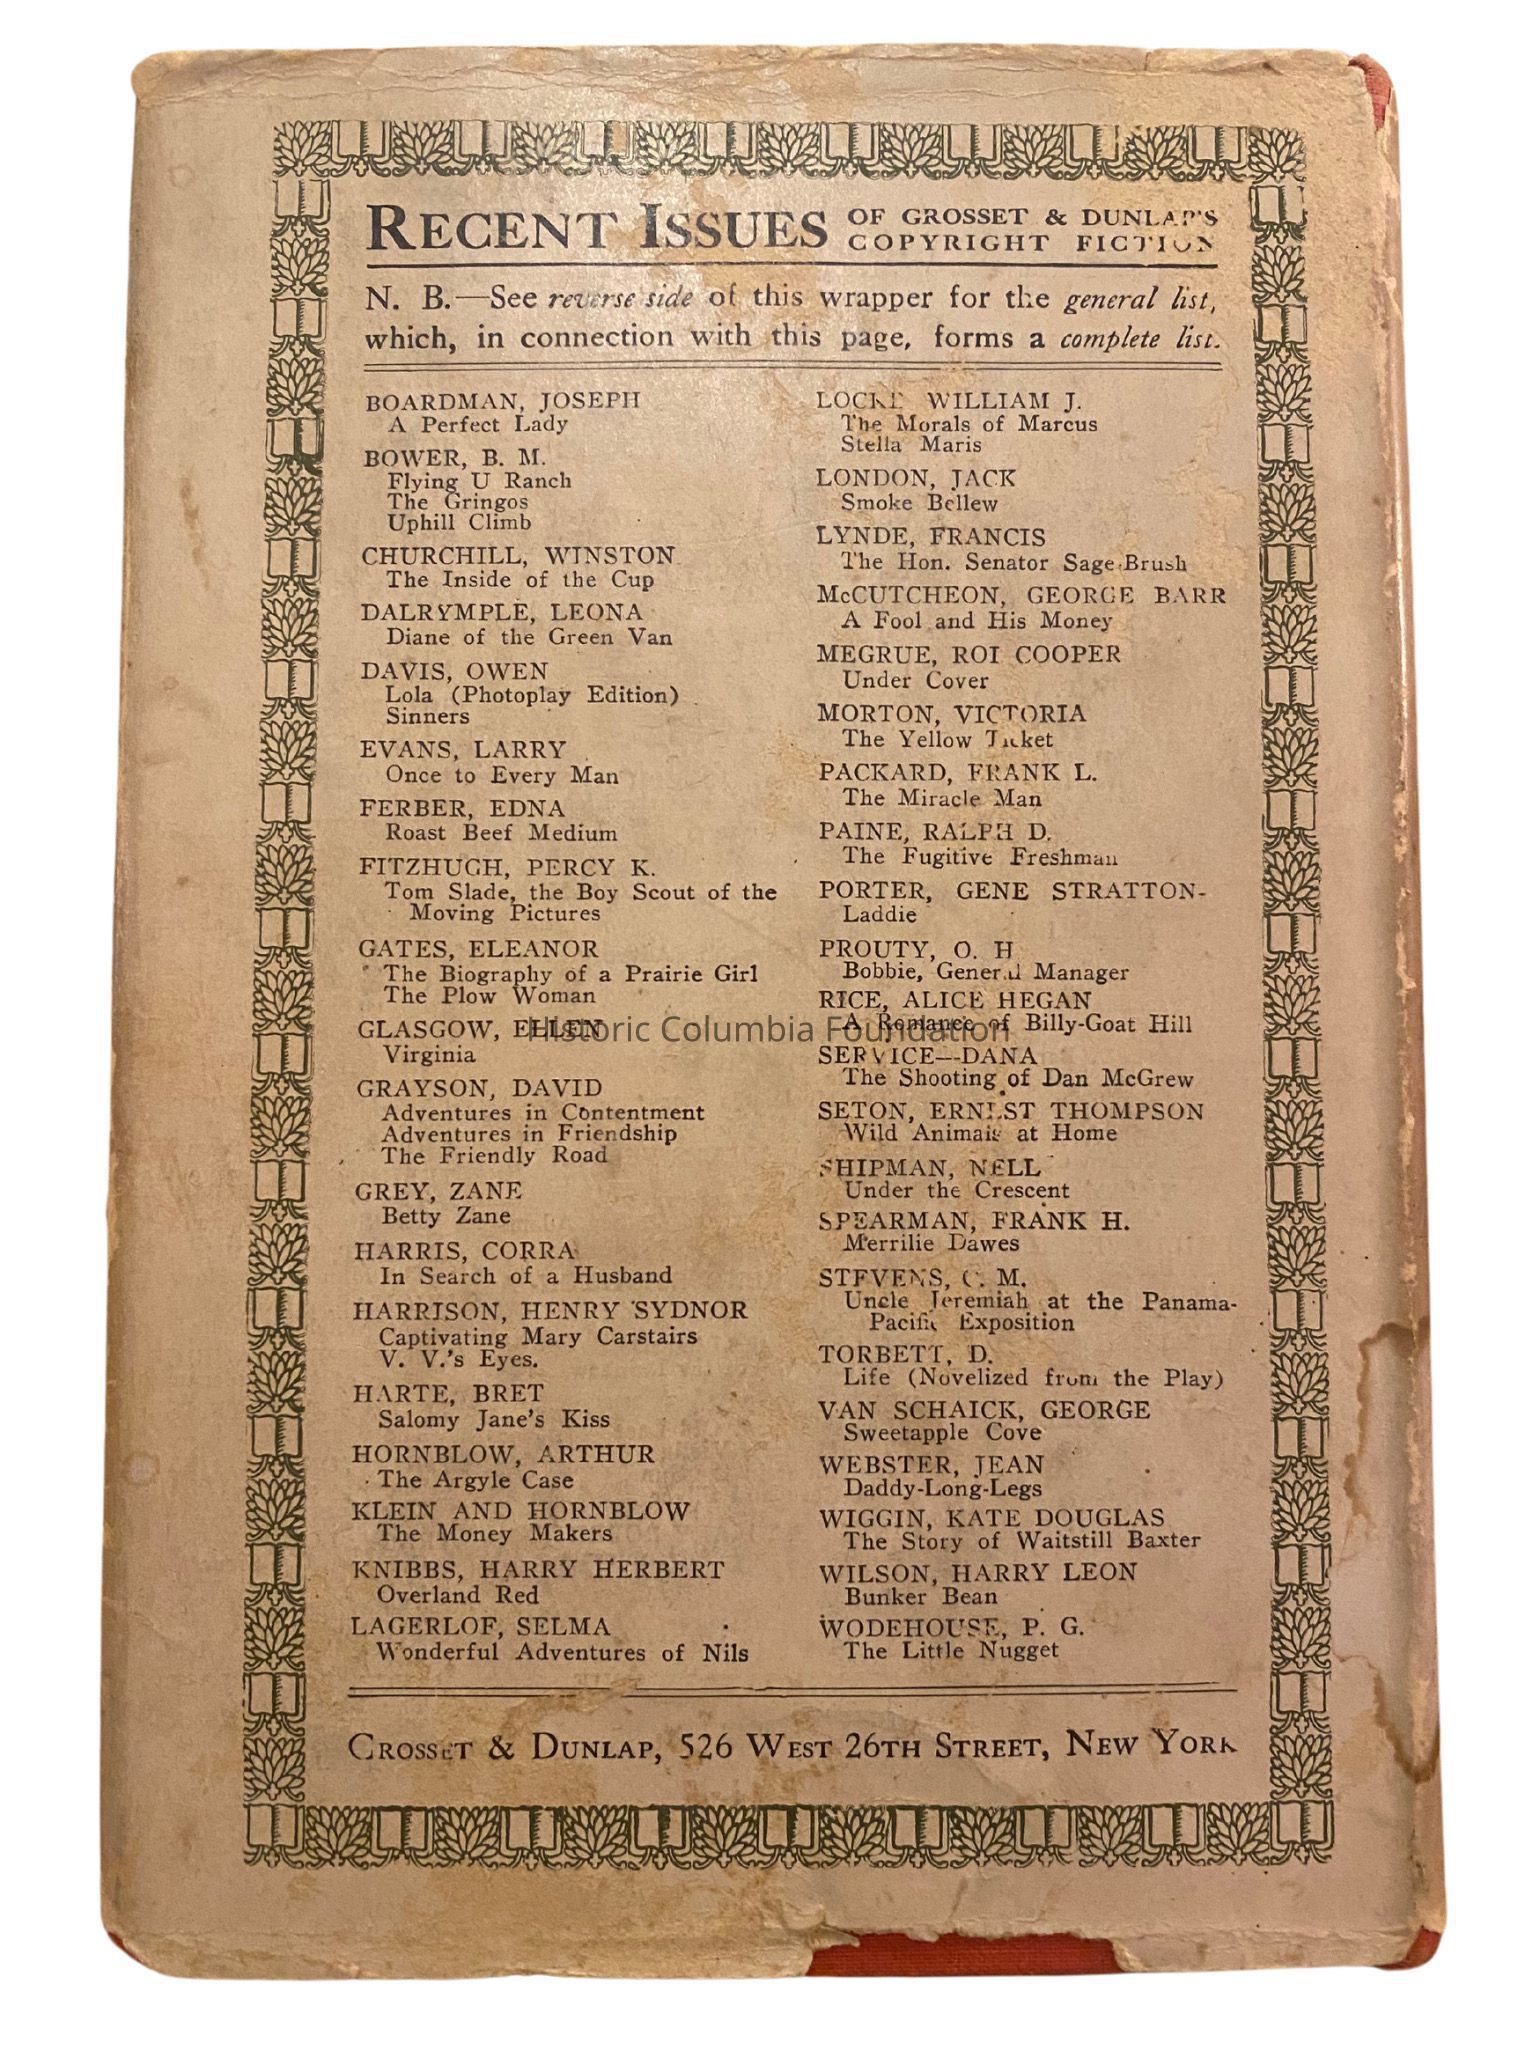 RECENT ISSUES OF GROSSET & DUNLAP'S
COPYRIGHT FICTION
N. B.—See reverse side of this wrapper for the general list,
which, in connection with this page, forms a complete list.
BOARDMAN, JOSEPH
A Perfect Lady
BOWER, B. M.
Flying U Ranch
The Gringos
Uphill Climb
CHURCHILL, WINSTON
The Inside of the Cup
DALRYMPLE, LEONA
Diane of the Green Van
DAVIS, OWEN
Lola (Photoplay Edition)
Sinners
EVANS, LARRY
Once to Every Man
FERBER, EDNA
Roast Beef Medium
FITZHUGH, PERCY K.
Tom Slade, the Boy Scout of the
Moving Pictures
GATES, ELEANOR
The Biography of a Prairie Girl
The Plow Woman
GLASGOW, ELLEN
Virginia
GRAYSON, DAVID
Adventures in Contentment
Adventures in Friendship
The Friendly Road
GREY, ZANE
Betty Zane
HARRIS, CORRA
In Search of a Husband
HARRISON, HENRY SYDNOR
Captivating Mary Carstairs
V. V.'s Eyes.
HARTE, BRET
Salomy Jane's Kiss
HORNBLOW, ARTHUR
The Argyle Case
KLEIN AND HORNBLOW
The Money Makers
KNIBBS, HARRY HERBERT
Overland Red
LAGERLOF, SELMA
Wonderful Adventures of Nils
LOCKE WILLIAM J.
The Morals of Marcus
Stella Maris
LONDON, JACK
Smoke Bellew
LYNDE, FRANCIS
The Hon. Senator Sage-Brush
McCUTCHEON, GEORGE BARR
A Fool and His Money
MEGRUE, ROI COOPER
Under Cover
MORTON, VICTORIA
The Yellow Ticket
PACKARD, FRANK L.
The Miracle Man
PAINE, RALPH D.
The Fugitive Freshman
PORTER, GENE STRATTON-
Laddie
PROUTY, O. H
Bobbie, General Manager
RICE, ALICE HEGAN
A Romance of Billy-Goat Hill
SERVICE—DANA
The Shooting of Dan McGrew
SETON, ERNEST THOMPSON
Wild Animals at Home
SHIPMAN, NELL
Under the Crescent
SPEARMAN, FRANK H.
Merrilie Dawes
STEVENS, C. M.
Uncle Jeremiah at the Panama-
Pacific Exposition
TORBETT, D.
Life (Novelized from the Play)
VAN SCHAICK, GEORGE
Sweetapple Cove
WEBSTER, JEAN
Daddy-Long-Legs
WIGGIN, KATE DOUGLAS
The Story of Waitstill Baxter
WILSON, HARRY LEON
Bunker Bean
WODEHOUSE, P. G.
The Little Nugget
GROSSET & DUNLAP, 526 WEST 26TH STREET, NEW YORK
Historic Columbia Foundation